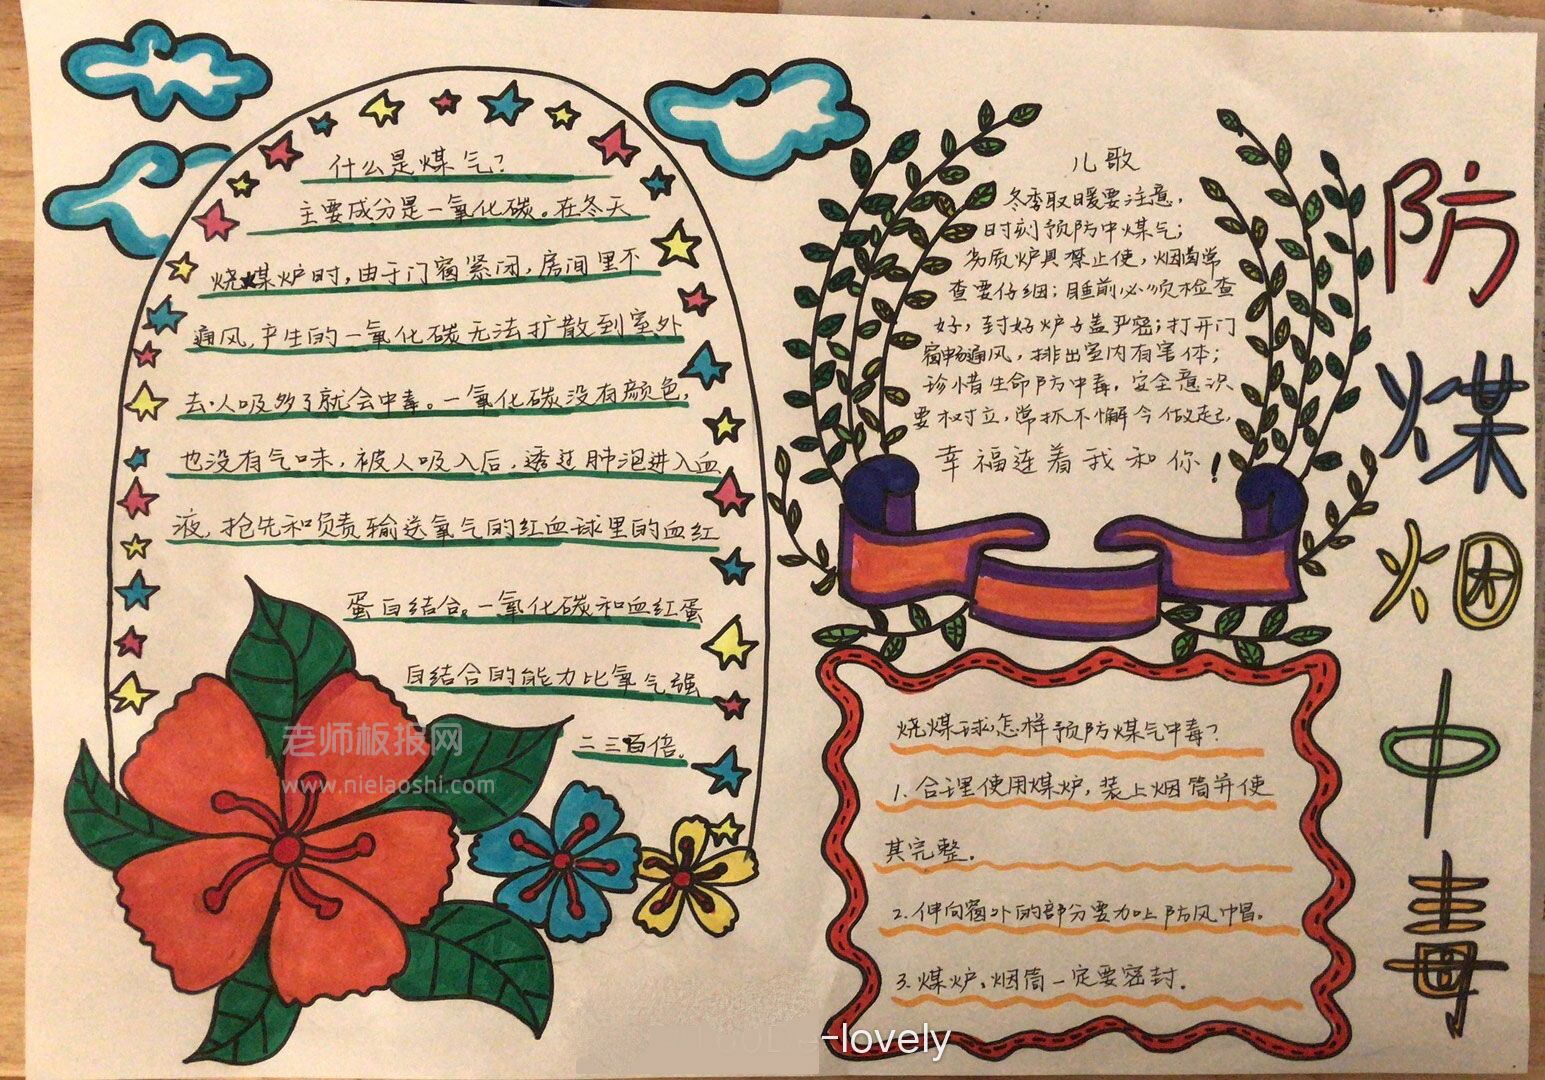 什么是煤气？
主要成分是一氧化碳。在冬天
烧煤炉时，由于门窗紧闭，房间里不
通风，产生的一氧化碳无法扩散到室外
去，人吸多了就会中毒。一氧化碳没有颜色，
也没有气味，被人吸入后，透过肺泡进入血
液，抢先和负责输送氧气的红血球里的血红
蛋白结合。一氧化碳和血红蛋
白结合的能力比氧气强
二三百倍。
儿歌
冬季取暖要注意，
时刻预防中煤气；
劣质炉具禁止使，烟囱常
查要仔细；睡前必须检查
好，封好炉子盖严密；打开门
窗畅通风，排出室内有害体；
珍惜生命防中毒，安全意识
要树立，常抓不懈今做起，
幸福连着我和你！
烧煤球怎样预防煤气中毒？
1.合理使用煤炉，装上烟筒并使
其完整。
2.伸向窗外的部分要加上防风帽。
3.煤炉、烟筒一定要密封。
防煤烟中毒
老师板报网
www.nielaoshi.com
--lovely